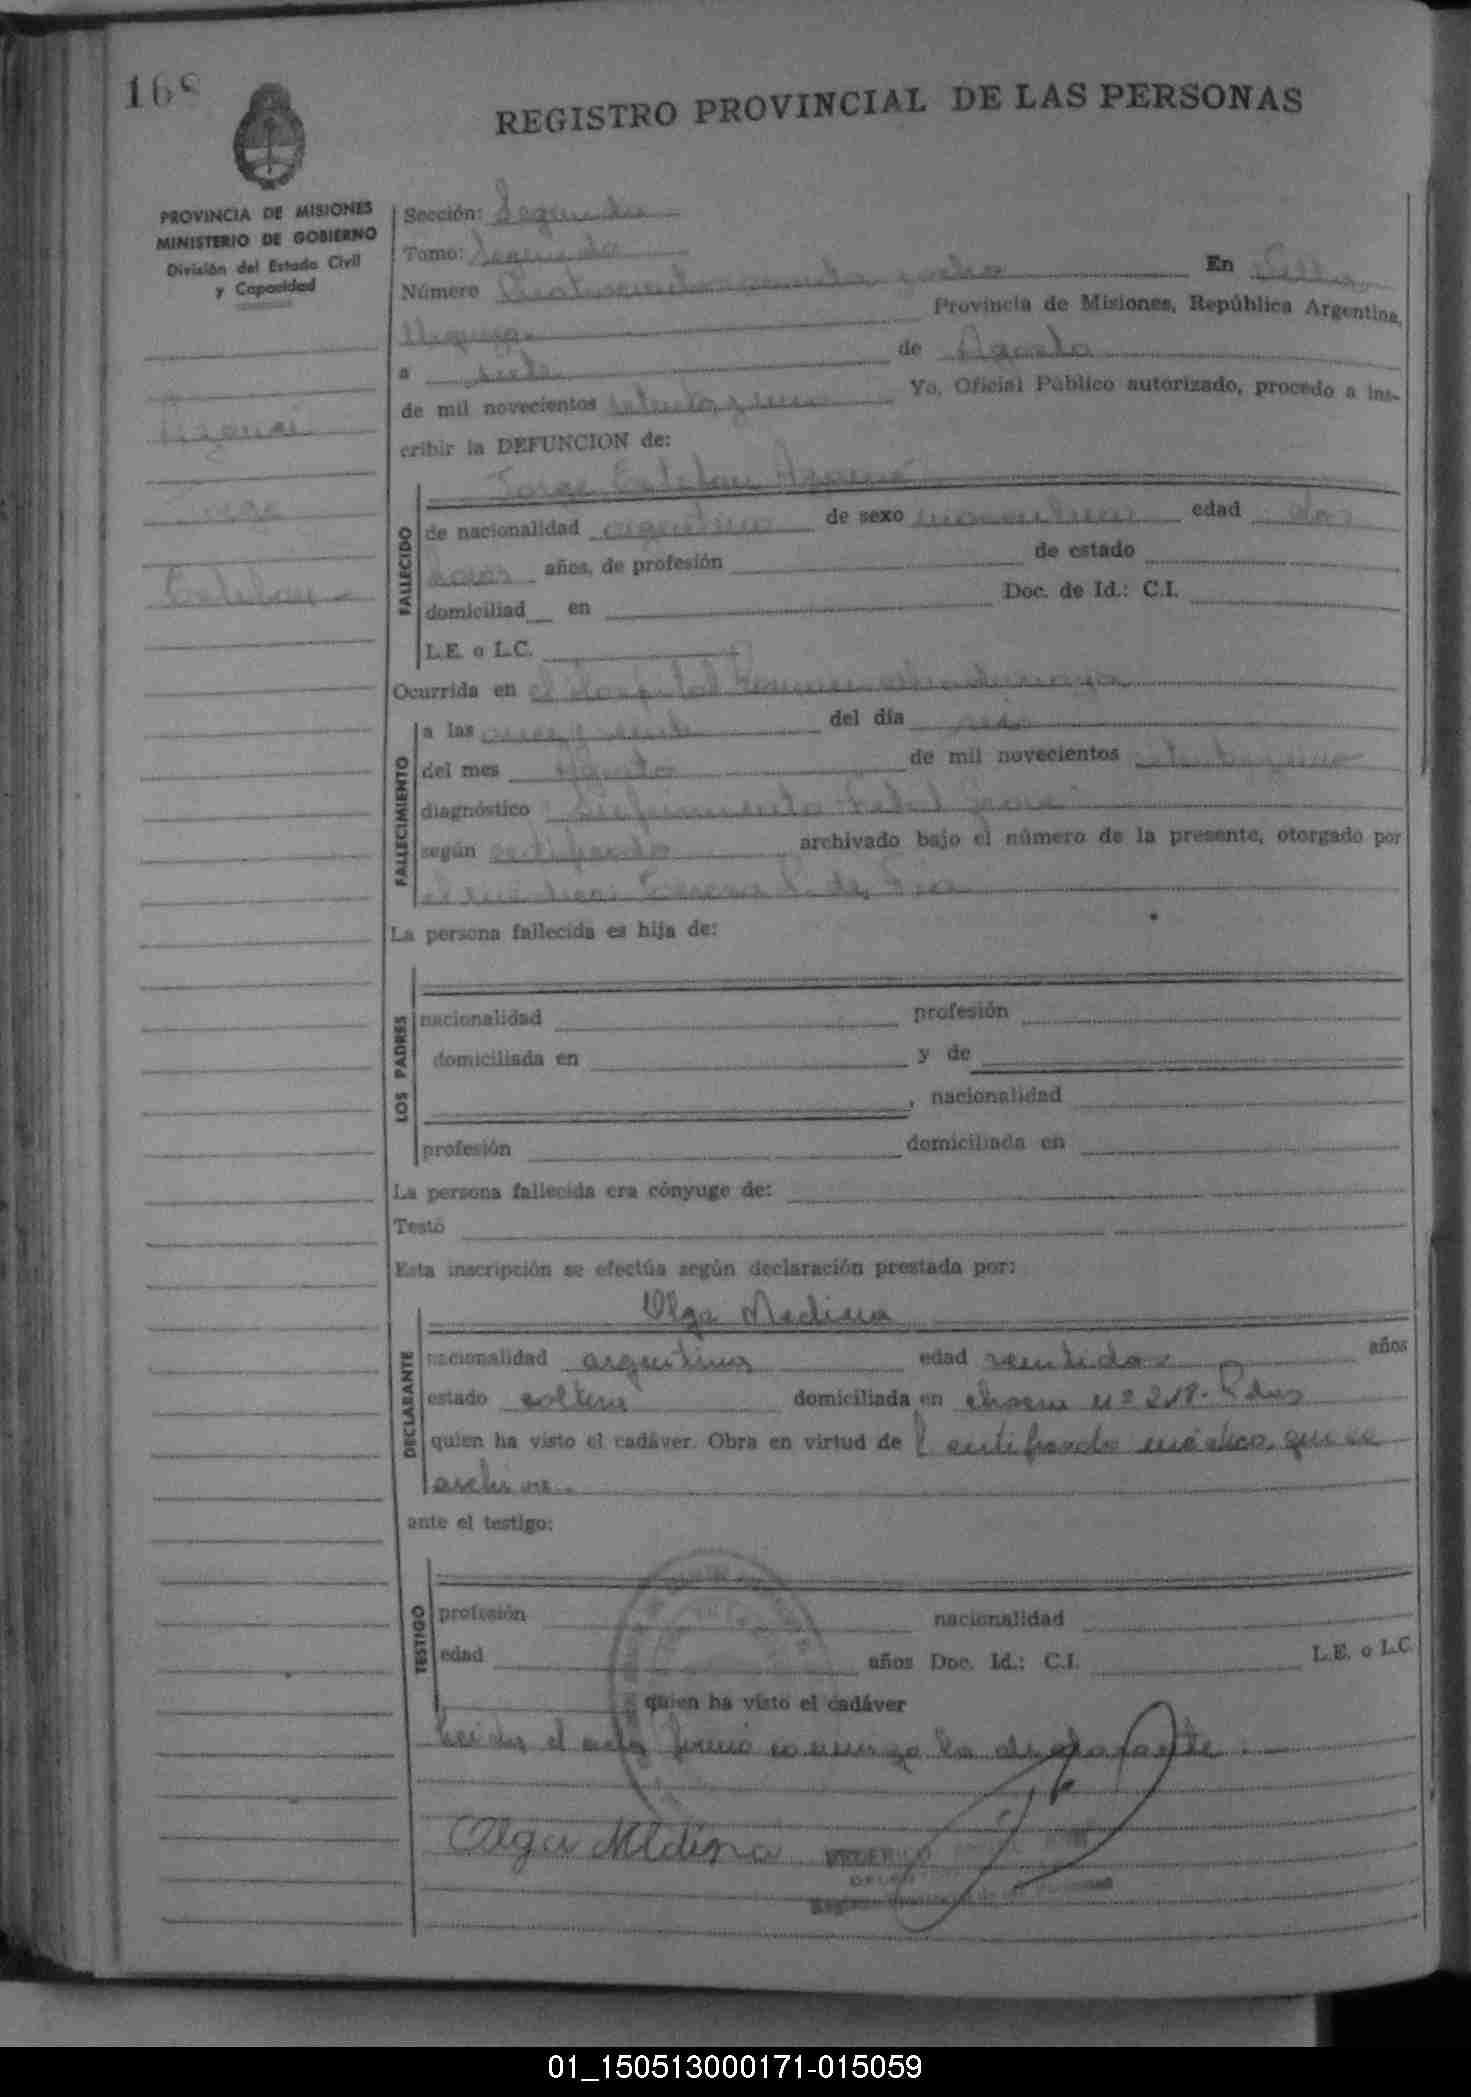 168
REGISTRO PROVINCIAL DE LAS PERSONAS
PROVINCIA DE MISIONES
MINISTERIO DE GOBIERNO
División del Estado Civil
y Capacidad
Sección: Segunda
Tomo: Segundo
Número y ocho En Villa
Urquiza Provincia de Misiones, República Argentina,
a siete de Agosto
de mil novecientos setenta y uno Yo, Oficial Público autorizado, procedo a ins-
cribir la DEFUNCION de:
Jorge
Esteban
FALLECIDO
Jorge Esteban
de nacionalidad argentino de sexo masculino edad dos
horas años, de profesión de estado
domiciliad en Doc. de Id.: C.I.
L.E. o L.C.
Ocurrida en el Hospital Ramon Madariaga
FALLECIMIENTO
a las once y veinte del día seis
del mes Agosto de mil novecientos setenta y uno
diagnóstico Sufrimiento fetal grave
según certificado archivado bajo el número de la presente, otorgado por
el médico: de
La persona fallecida es hija de:
LOS PADRES
nacionalidad profesión
domiciliada en y de
, nacionalidad
profesión domiciliada en
La persona fallecida era cónyuge de:
Testó
Esta inscripción se efectúa según declaración prestada por:
DECLARANTE
Olga Medina
nacionalidad argentina edad veintidos años
estado soltera domiciliada en chacra nº 218. Pdas
quien ha visto el cadáver. Obra en virtud de l certificado médico, que se
archiva.
ante el testigo:
TESTIGO
profesión nacionalidad
edad años Doc. Id.: C.I. L.E. o L.C.
quien ha visto el cadáver
Leida el acta firmó conmigo la declarante.
Olga Medina
FEDERICO
01_150513000171-015059